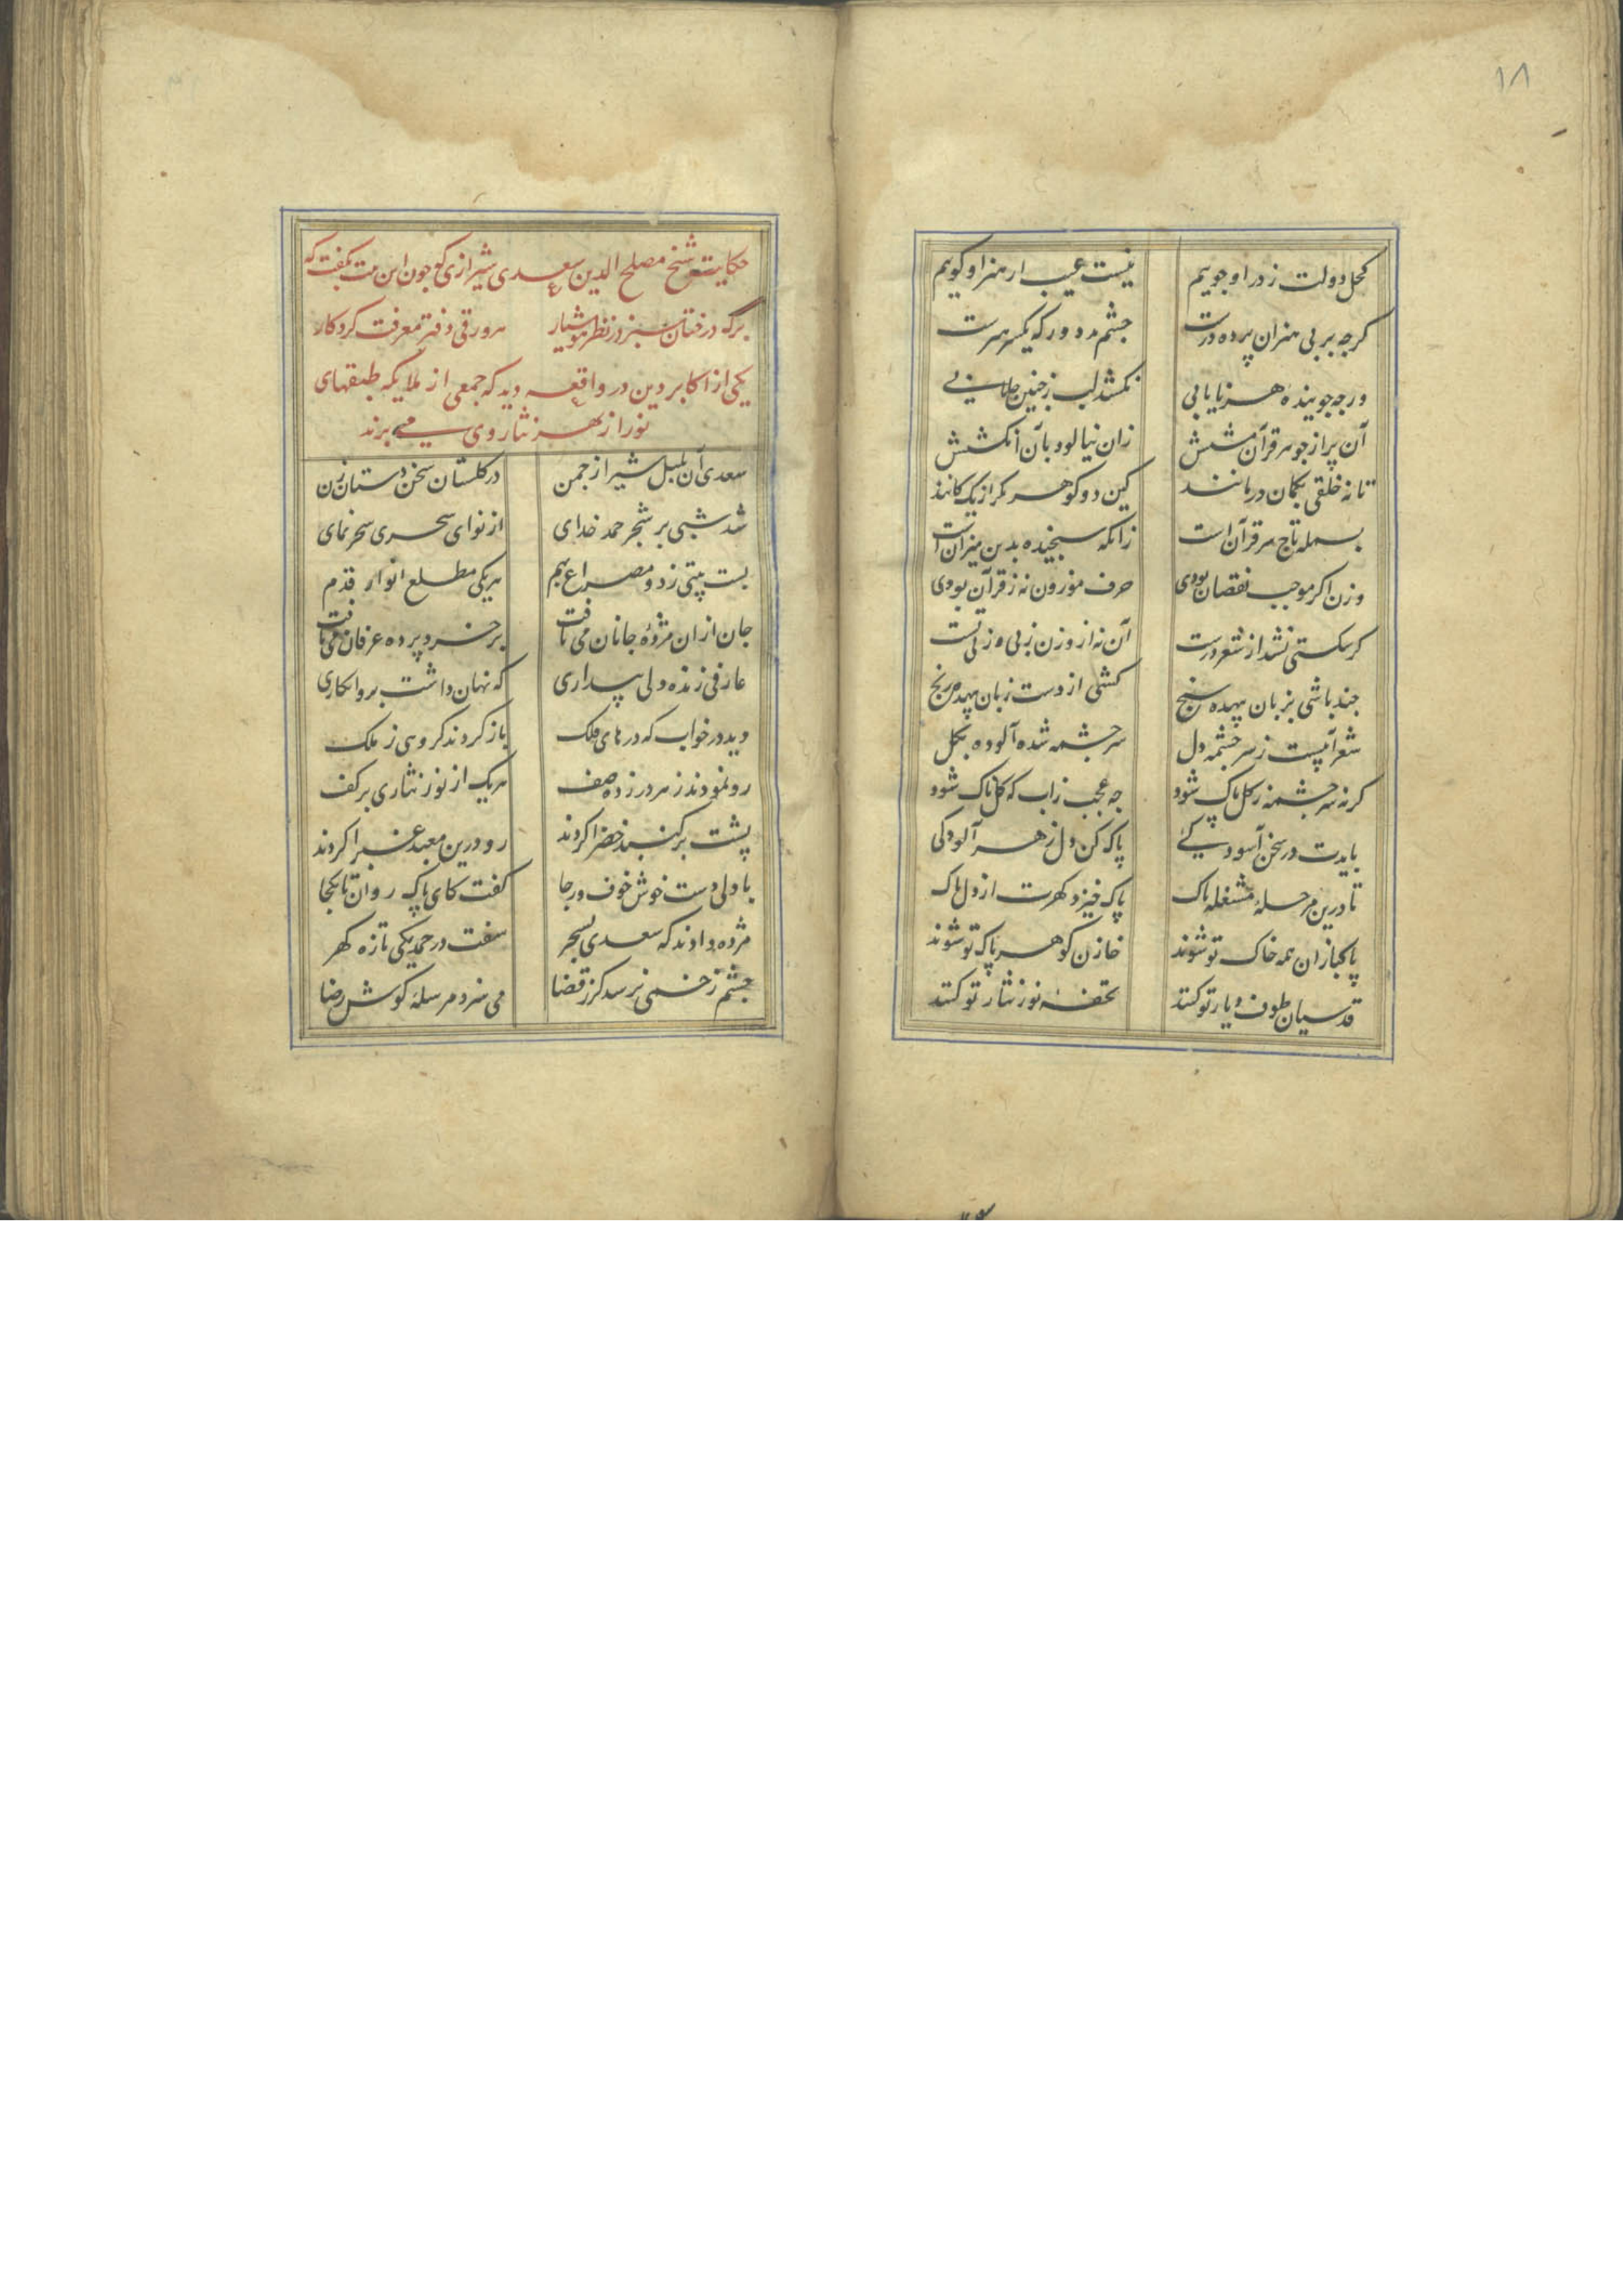 ۱۸
کحل دولت ز در او جوییم نیست عیب ار هنر او کوییم
کرچه بر بی هنران پرده درست چشم بد دور که یکسر هنرست
ورچه جوینده هنر یابی نکشد لب ز چنین جلابی
آن پر از جوهر قرآن مشتش زان نیالود بآن انکشتش
تا نه خلقی بکمان درمانند کین دو کوهر مکر از یک کانند
بسمله تاج سر قرآن است زانکه سنجیده بدین میزان است
وزن اکر موجب نقصان بودی حرف موزون نه ز قرآن بودی
کر شکستی نشد از شعر درست آن نه از وزن ز بی وزنی تست
چند باشی بزبان بیهده سنج کشی از دست زبان بیهده رنج
شعر آبیست ز سرچشمه دل سرچشمه شده آلوده بکل
کر نه سرچشمه ز کل پاک شود چه عجب زاب که کلناک شود
بایدت در سخن آسودکیٔ پاک کن دل ز هر آلودکی
تا درین مرحلهٔ مشغله ناک پاک خیزد کهرت از دل پاک
پاکبازان همه خاک تو شوند خازن کوهر پاک تو شوند
قدسیان طوف دیار تو کنند تحفه نور نثار تو کنند
حکایت شیخ مصلح الدین سعدی شیرازی که چون این بیت بکفت که
برک درختان سبز در نظر هوشیار هر ورقی دفتر معرفت کردکار
یکی از اکابر دین در واقعه دید که جمعی از ملایکه طبقهای
نور از بهر نثار وی می برند
سعدی آن بلبل شیراز چمن در کلستان سخن دستان زن
شد شبی بر شجر حمد خدای از نوای سحری سحر نمای
بست بیتی ز دو مصراع بهم هر یکی مطلع انوار قدم
جان ازان مژدهٔ جانان می یافت بر خرد پرده عرفان می بافت
عارفی زنده دلی بیداری که نهان داشت بر و انکاری
دید در خواب که درهای فلک باز کردند کروهی ز ملک
رو نمودند ز هر در زده صف هر یک از نور نثاری بر کف
پشت بر کنبد خضرا کردند رو درین معبد غبرا کردند
با دلی دست خوش خوف و رجا کفت کای پاک روان تا بکجا
مژده دادند که سعدی بسحر سفت در حمد یکی تازه کهر
چشم زخمی نرسد کر ز قضا می سزد مرسلهٔ کوش رضا